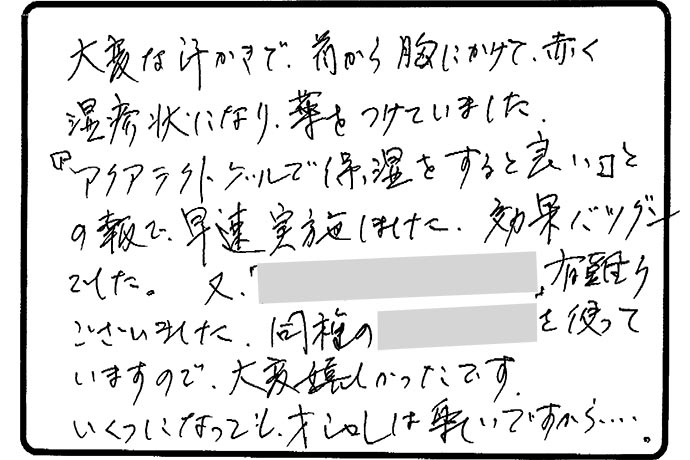 大変な汗かきで、首から胸にかけて、赤く
湿疹状になり、薬をつけていました。
『アクアテクトゲルで保湿をすると良い』と
の報で、早速実施しました。効果バツグン
でした。又、「 」有難う
ございました。同種の を使って
いますので、大変嬉しかったです。
いくつになっても、オシャレは楽しいですから・・・・。